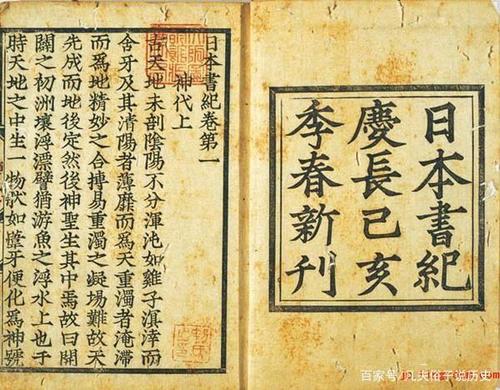 日本書紀
慶長己亥
季春新刊
日本書紀卷第一
神代上
古天地未剖陰陽不分渾沌如雞子溟涬而
含牙及其清陽者薄靡而爲天重濁者淹滯
而爲地精妙之合搏易重濁之凝場難故天
先成而地後定然後神聖生其中焉故曰開
闢之初洲壤浮漂譬猶游魚之浮水上也于
時天地之中生一物狀如葦牙便化爲神號
百家号/凡夫俗子说历史